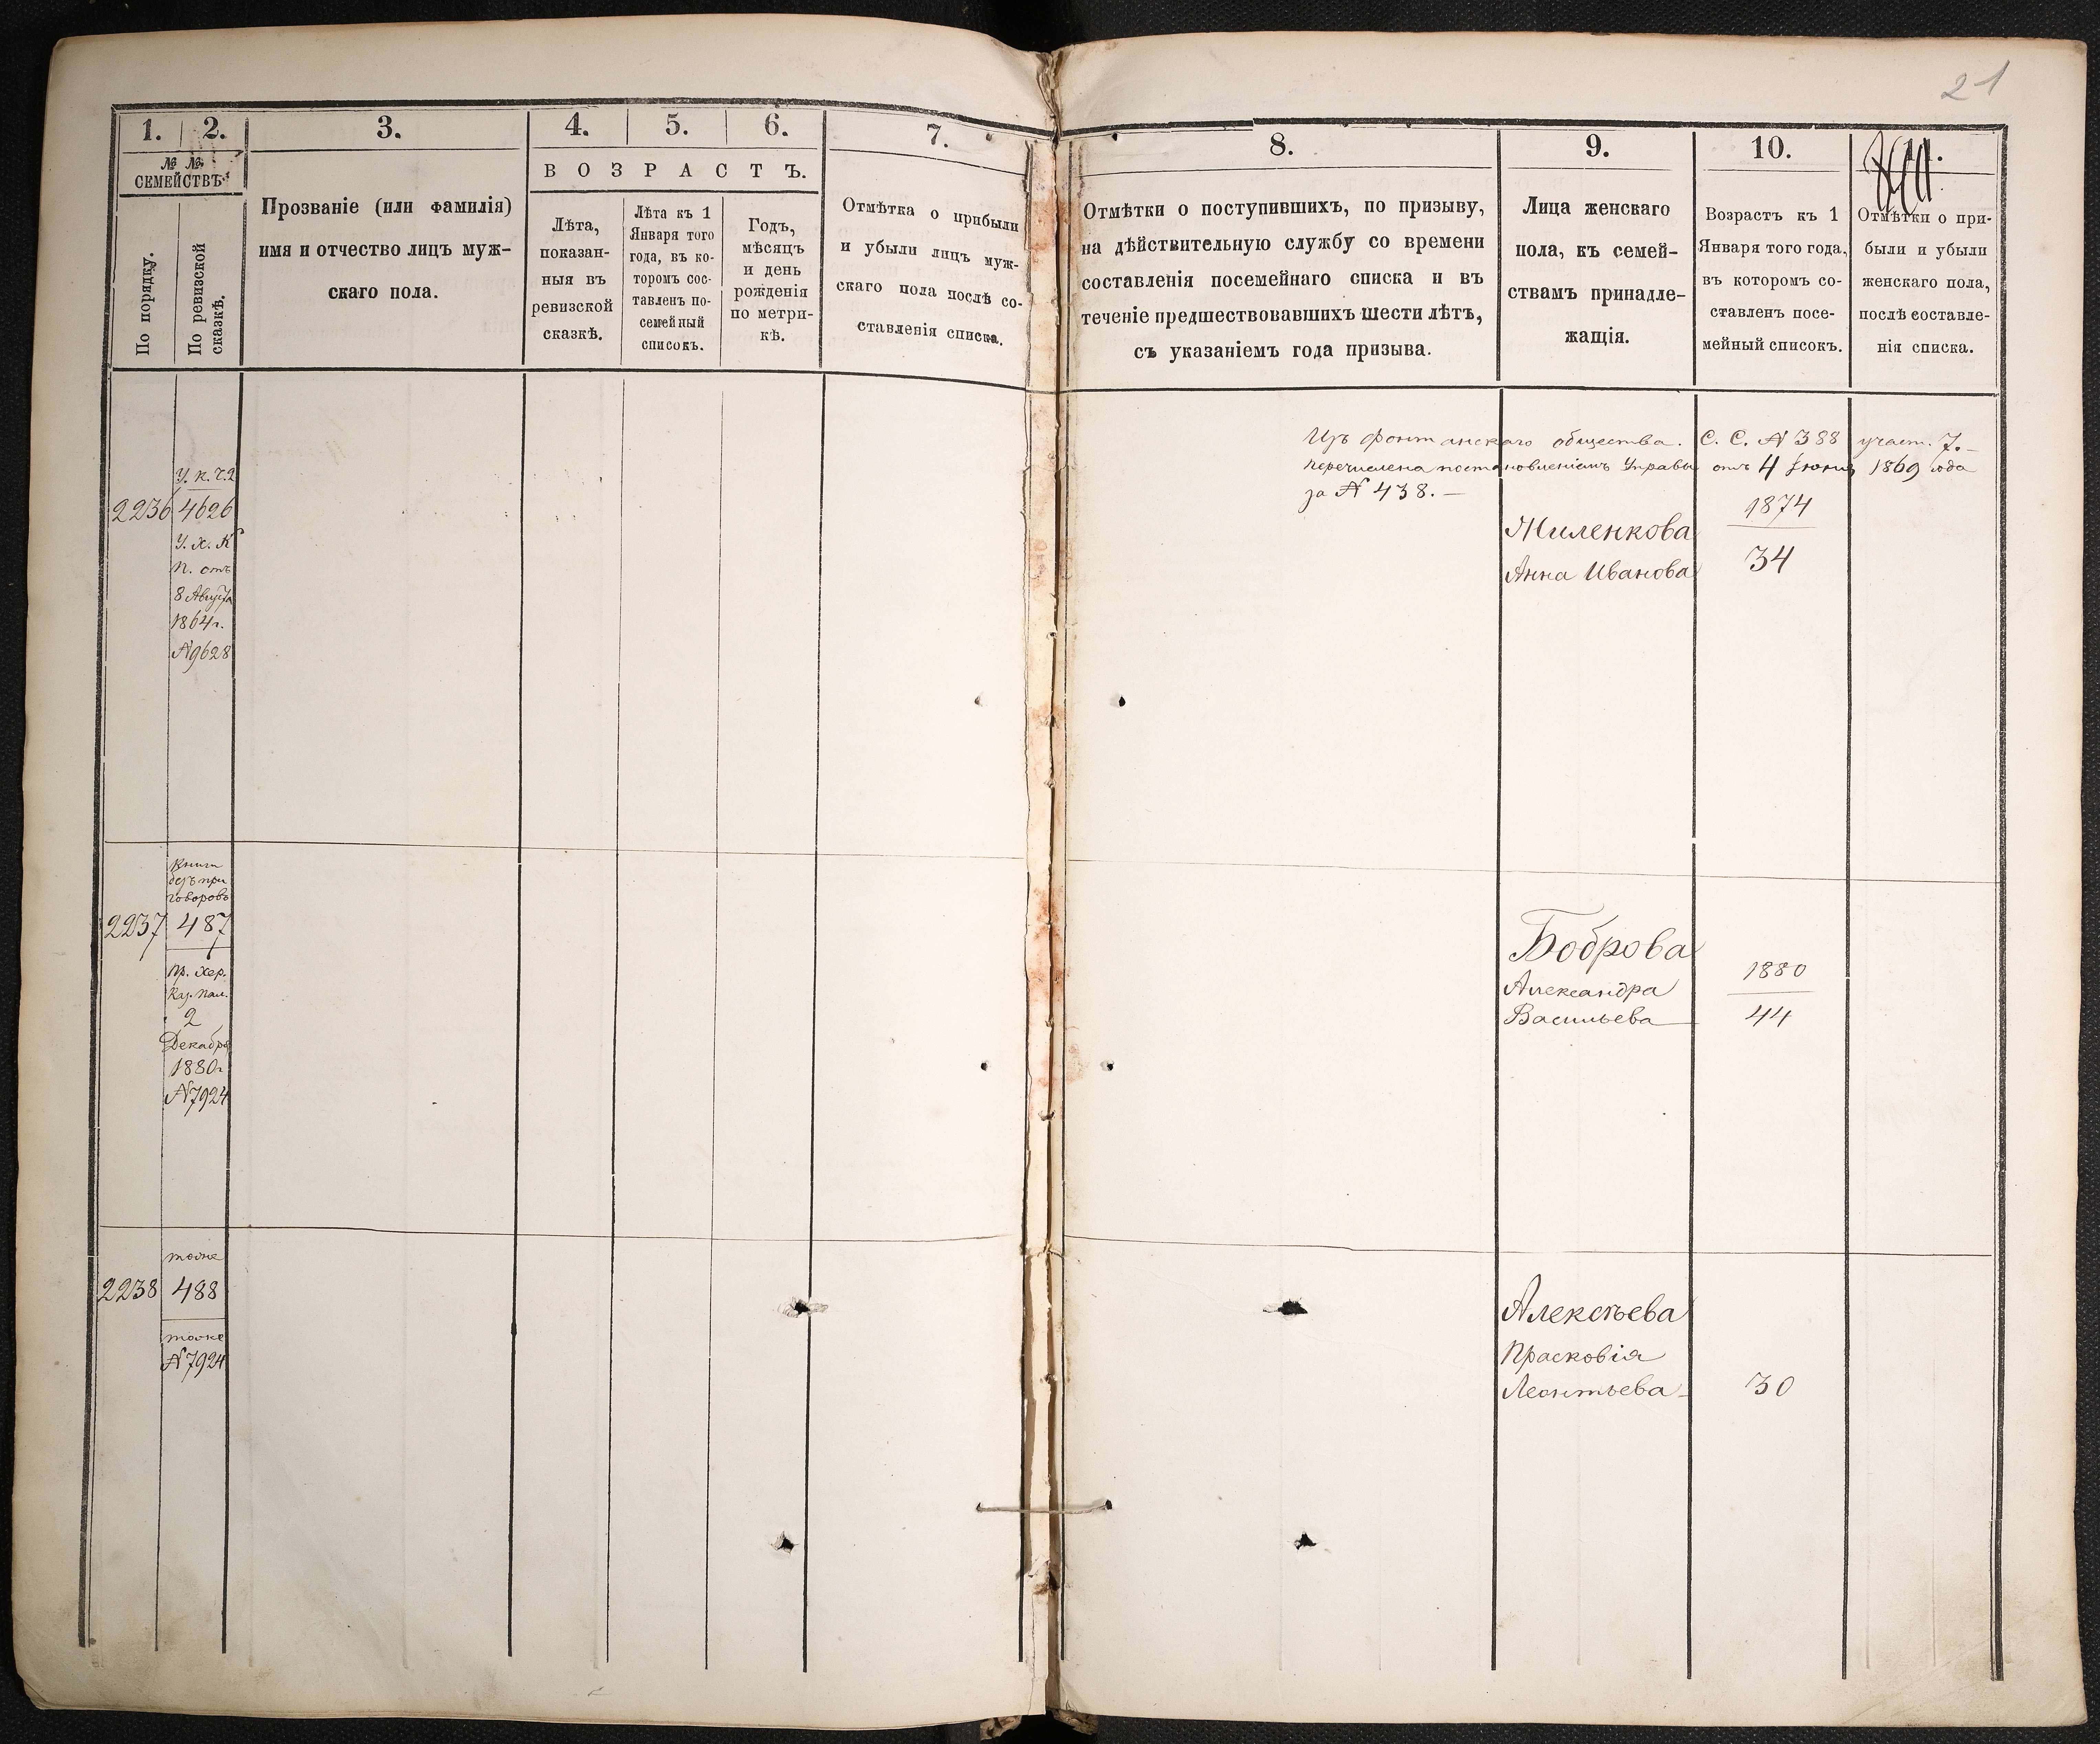 21
1.
2.
3.
4.
5.
6.
7.
8.
9.
10.
№ №
СЕМЕЙСТВЪ
По порядку.
По ревизской
сказкѣ.
Прозваніе (или фамилія)
имя и отчество лицъ муж-
скаго пола.
ВОЗРАСТЪ.
Лѣта,
показан-
ныя въ
ревизской
сказкѣ.
Лѣта къ 1
Января того
года, въ ко-
торомъ сос-
тавленъ по-
семейный
списокъ.
Годъ,
мѣсяцъ
и день
рожденія
по метри-
кѣ.
Отмѣтка о прибыли
и убыли лицъ муж-
скаго пола послѣ со-
ставленія списка.
Отмѣтки о поступившихъ, по призыву,
на дѣйствительную службу со времени
составленія посемейнаго списка и въ
теченіе предшествовавшихъ шести лѣтъ,
съ указаніемъ года призыва.
Лица женскаго
пола, къ семей-
ствамъ принадле-
жащія.
Возрастъ къ 1
Января того года,
въ которомъ со-
ставленъ посе-
мейный списокъ.
Отмѣтки о при-
были и убыли
женскаго пола,
послѣ составле-
нія списка.
У. к. ч. 2
2236 4626
У. Х. К
п. отъ
8 Августа
1864 г.
№ 9628
Изъ фонтанскаго общества. С. С. № 388 участ. 7.
перечислена постановленіемъ Управы отъ 4 Іюня 1869 года
за № 438.—
Жиленкова
Анна Иванова
1874
34
Книги
безъ при
говоровъ
2237 487
Пр. Хер.
Каз. пал.
2
Декабря
1880 г
№ 7924
Боброва
Александра
Васильева
1880
44
тоже
2238 488
тоже
№ 7924
Алексѣева
Прасковія
Леонтьева
30